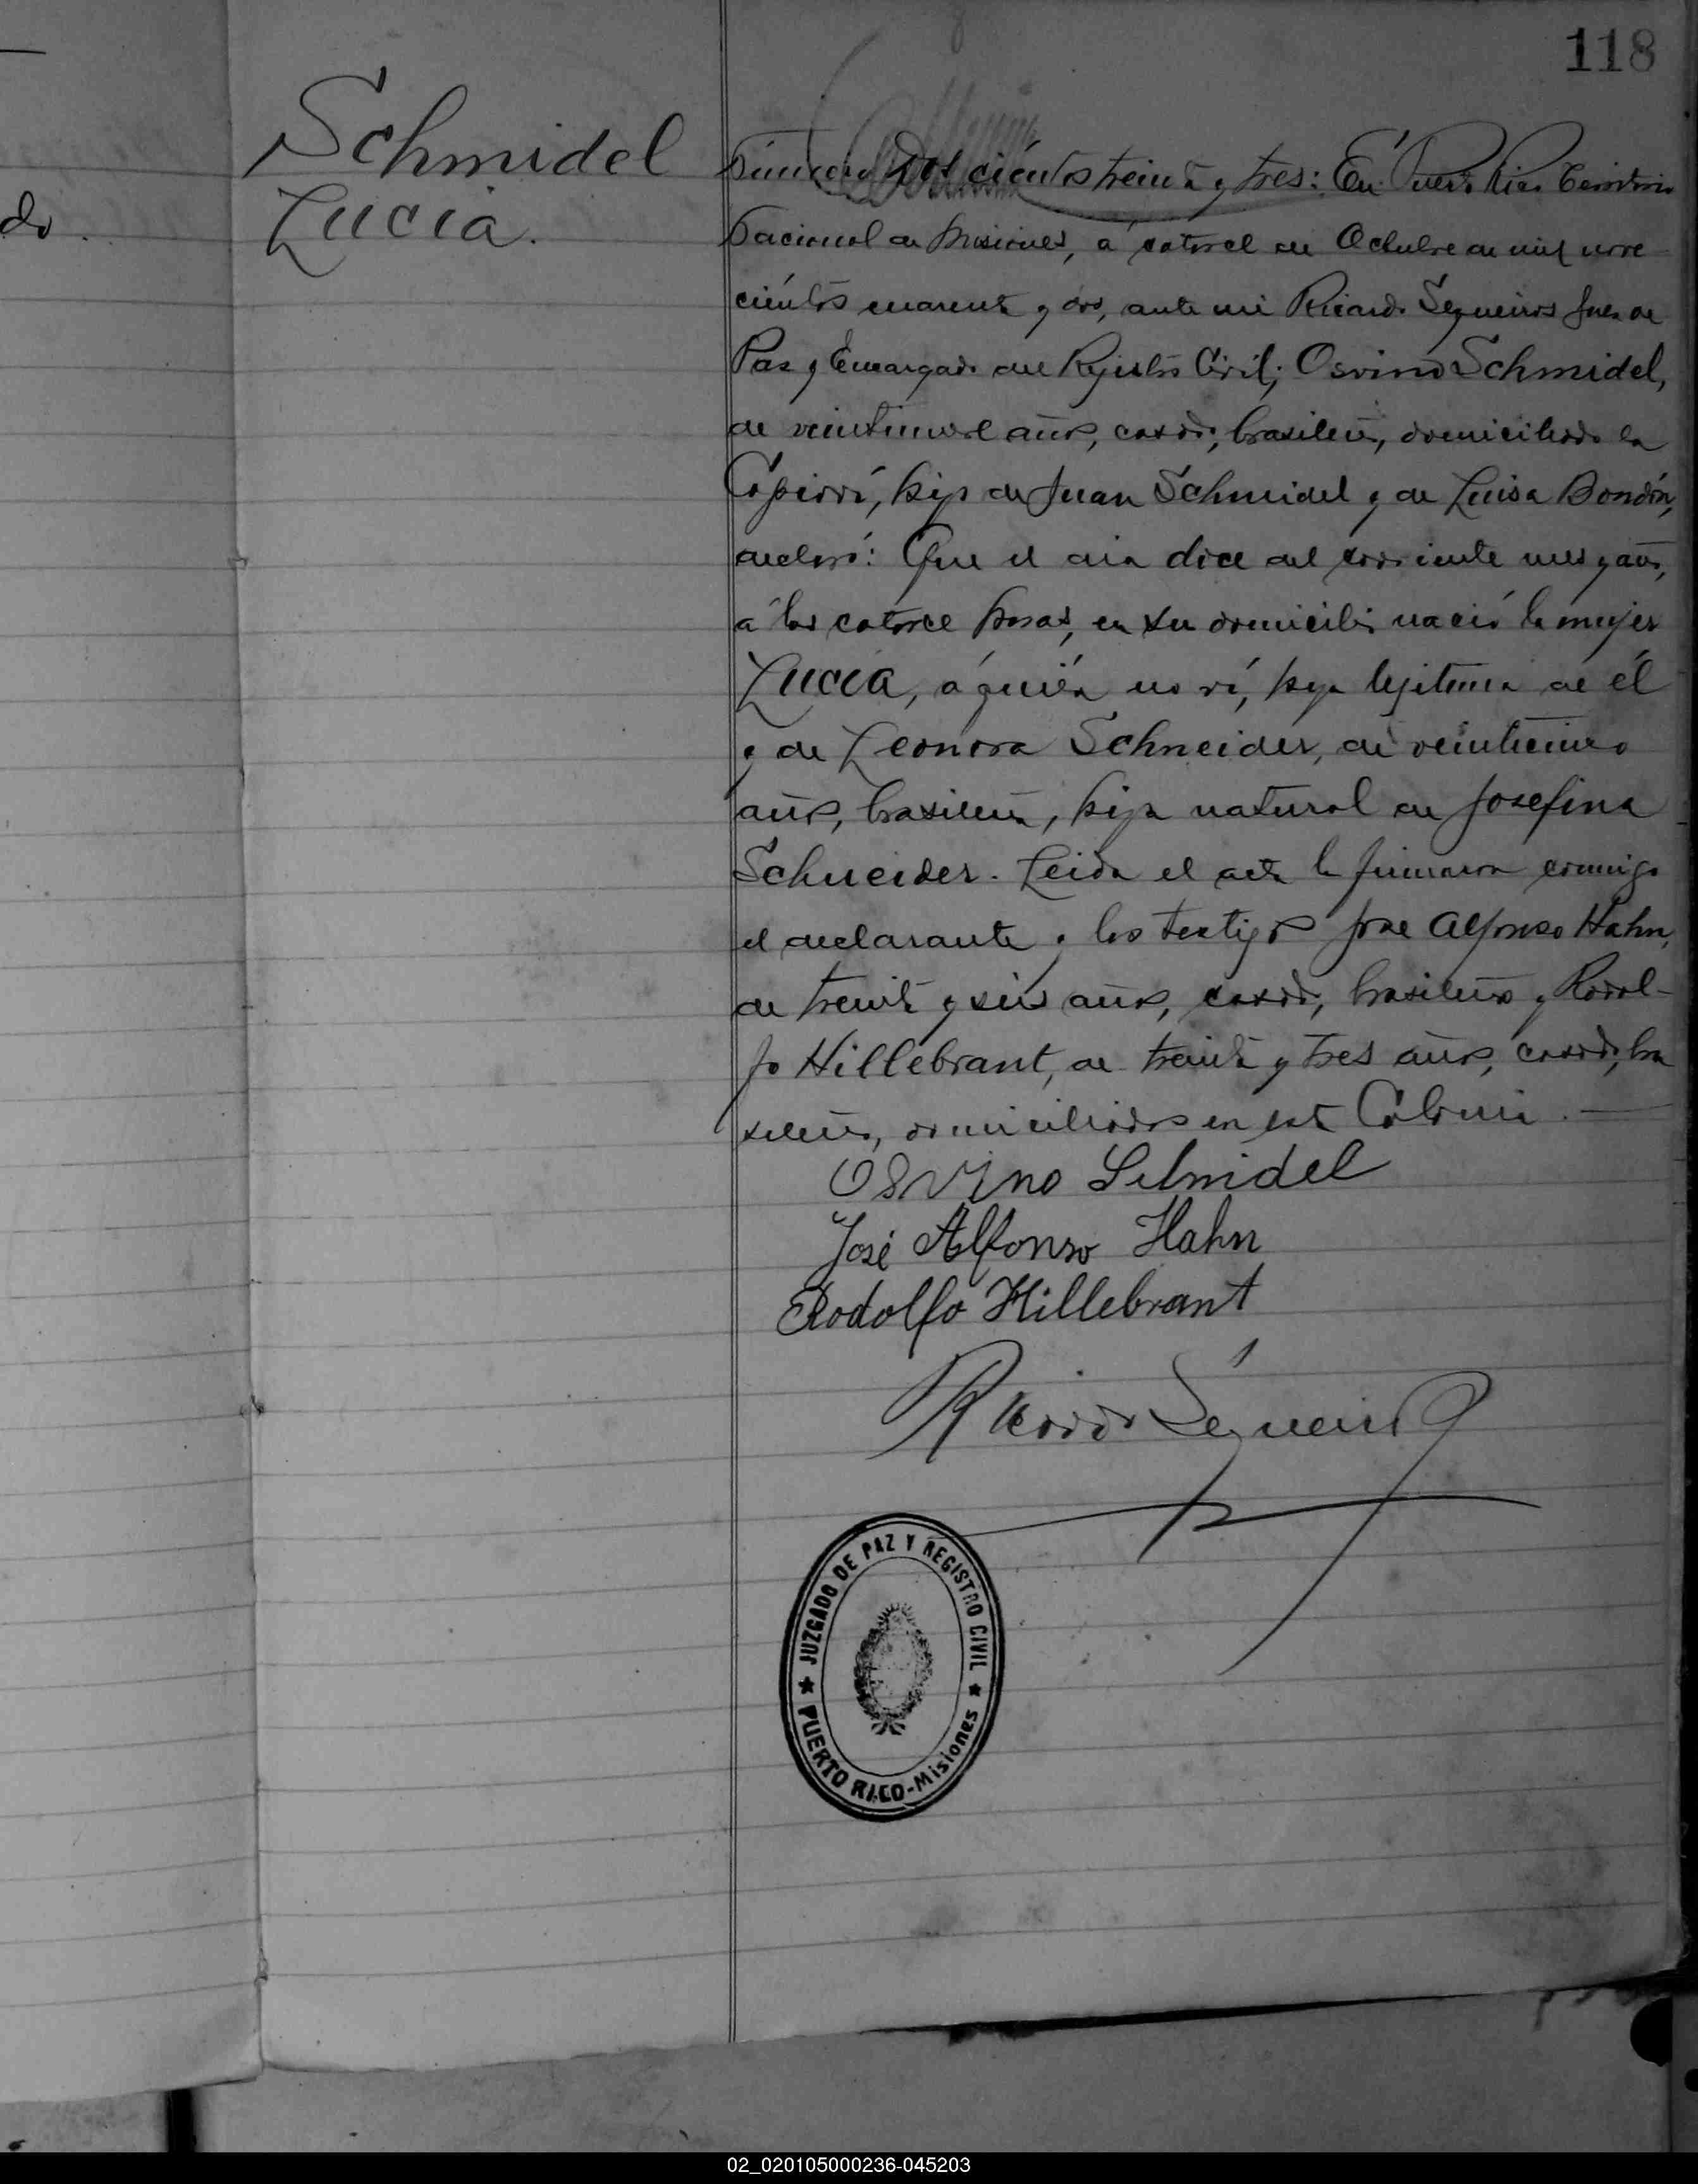 118
Schmidel
Lucia.
do
Número doscientos treinta y tres: En Puerto Rico Territorio
Nacional de Misiones, á catorce de Octubre de mil nove
cientos cuarenta y dos, ante mi Ricardo Sequeiros Juez de
Paz y Encargado del Rejistro Civil; Osvino Schmidel,
de veintinueve años, casado, brasileño, domiciliado en
Capioví, hijo de Juan Schmidel y de Luisa Bondín,
declaró: Que el dia doce del corriente mes y año,
á las catorce horas, en su domicilio nació la mujer
Lucia, á quién no ví, hija lejitima de él
y de Leonora Schneider, de veinticinco
años, brasileña, hija natural de Josefina
Schneider. Leida el acta la firmaron conmigo
el declarante y los testigos José Alfonso Hahn,
de treinta y seis años, casado, brasileño y Rodol-
fo Hillebrant, de treinta y tres años, casado, bra
sileño, domiciliados en esta Colonia.
Osvino Schmidel
José Alfonso Hahn
Rodolfo Hillebrant
Ricardo Sequeiros
JUZGADO DE PAZ Y REGISTRO CIVIL
PUERTO RICO-Misiones
02_020105000236-045203